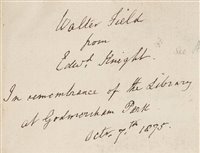 Walter Field
from
Edwd. Knight.
In remembrance of the Library
at Godmersham Park
Octr. 7th 1875.
See